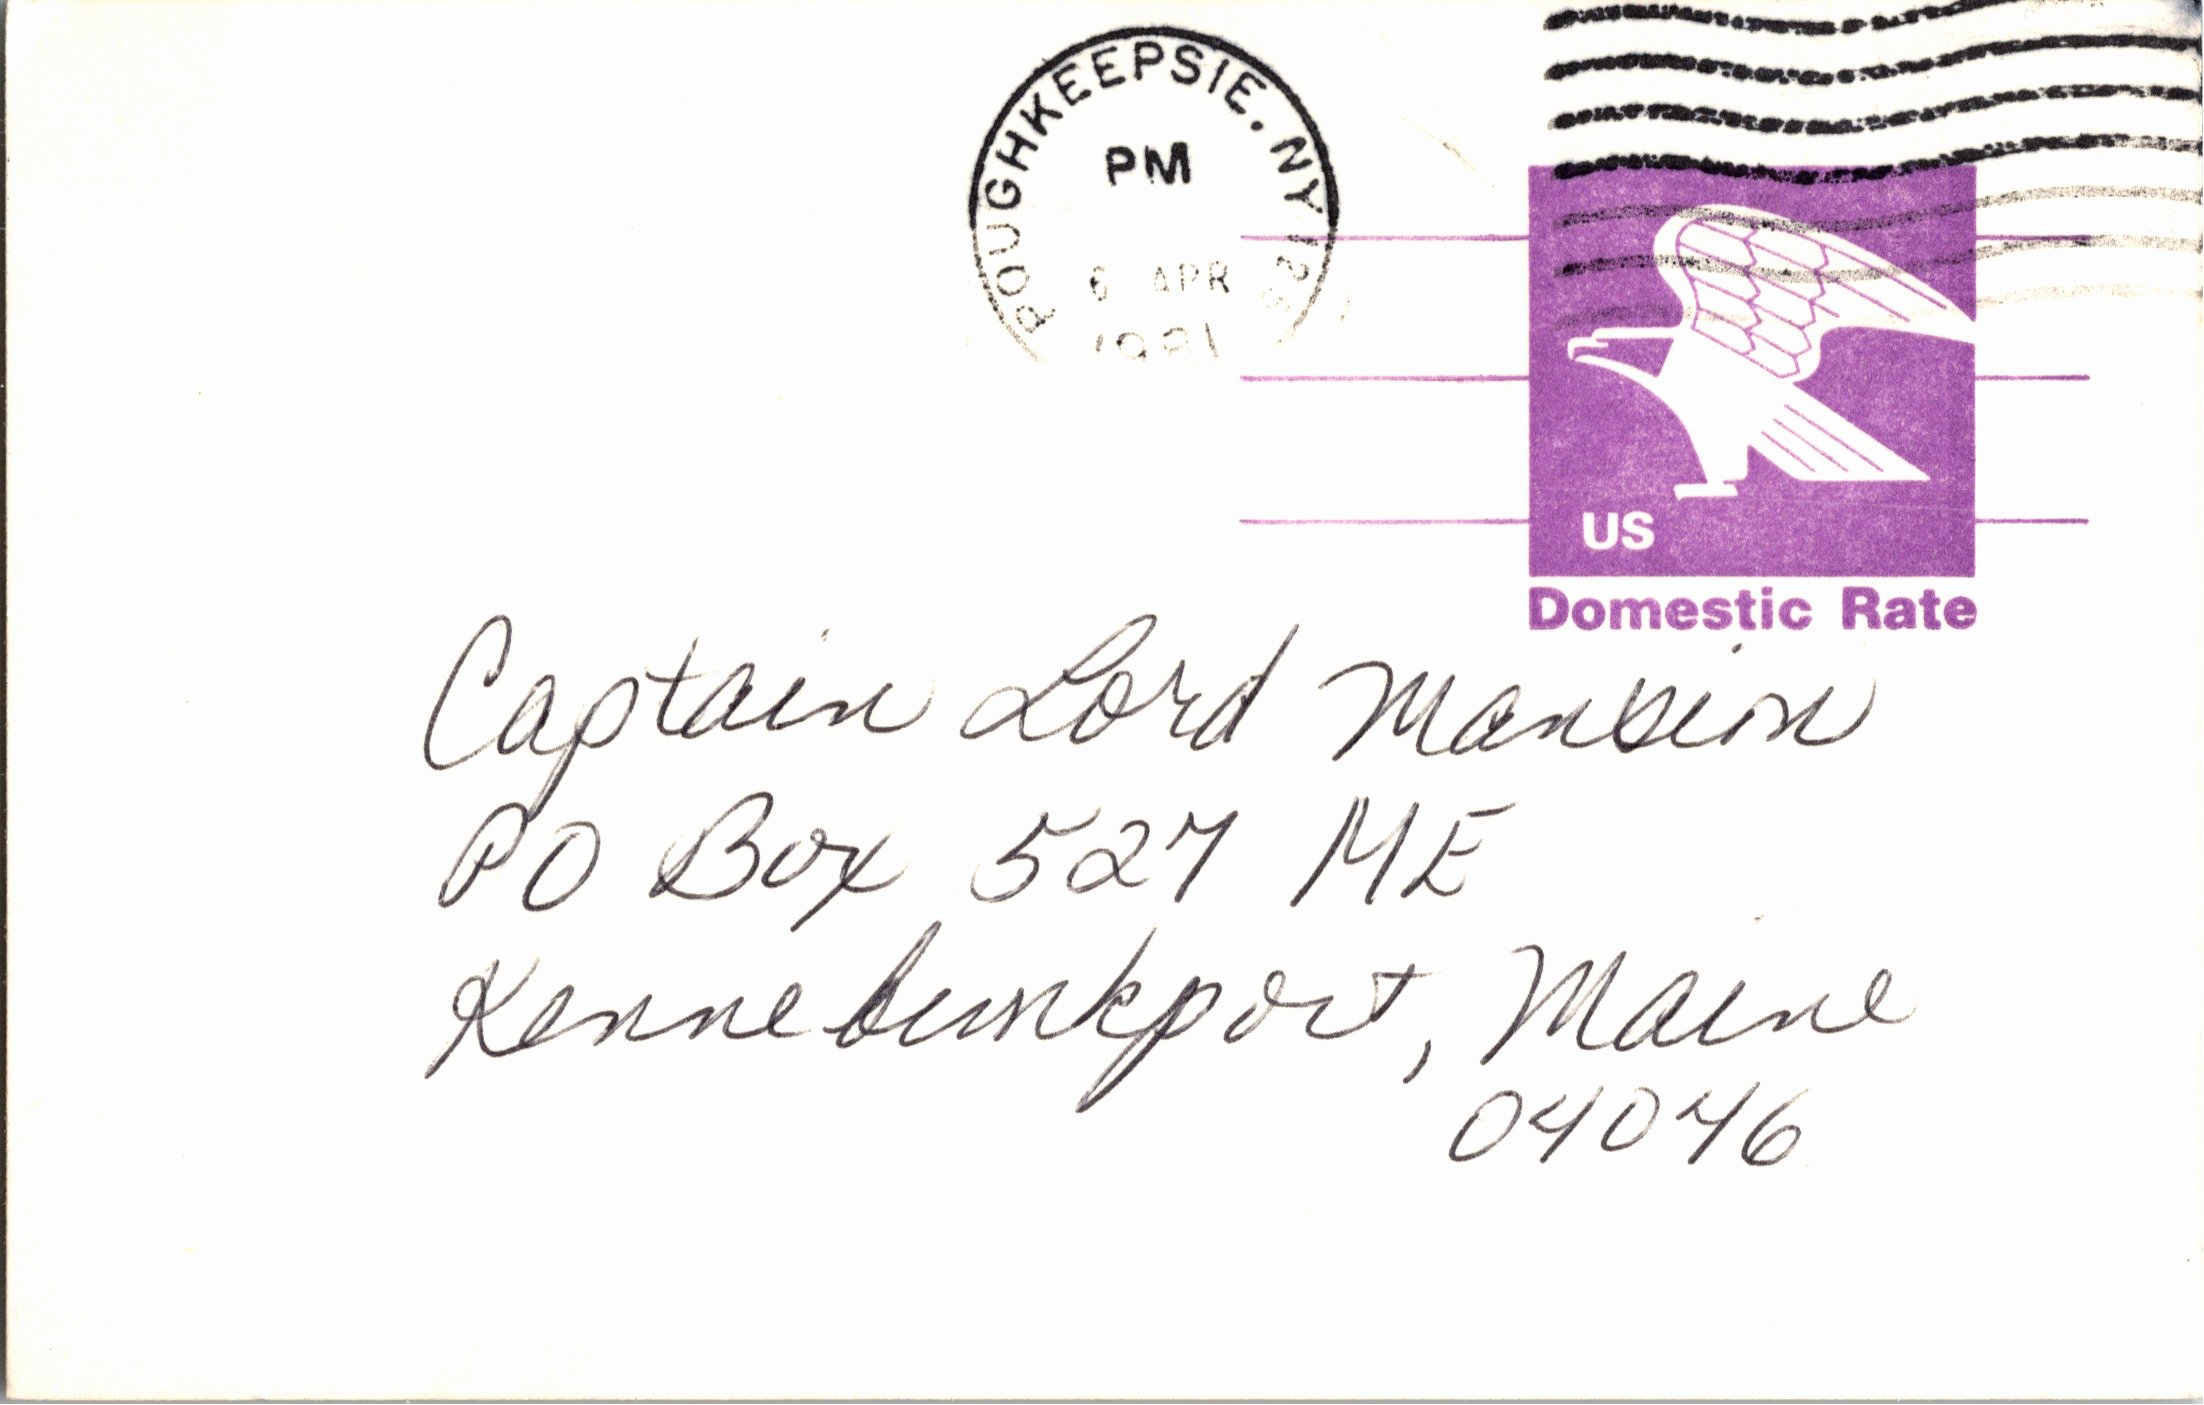 POUGHKEEPSIE, NY 126
PM
6 APR
1981
US
Domestic Rate
Captain Lord Mansion
PO Box 527 ME
Kennebunkport, Maine
04046